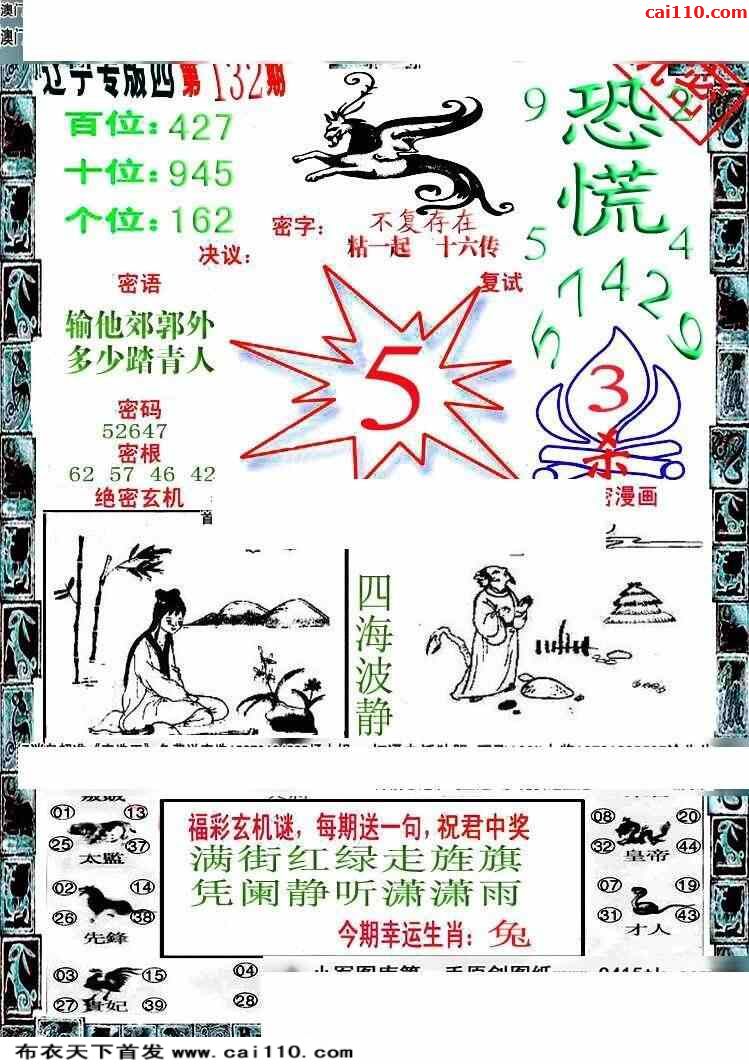 cai110.com
澳门
澳门
辽宁专版四 第132期
百位:427
十位:945
个位:162
9 恐慌 2
5 4
57429
密字: 不复存在
粘一起 十六传
决议:
复试
密语
输他郊郭外
多少踏青人
5
3
杀
密码
52647
密根
62 57 46 42
绝密玄机
密漫画
四海波静
01 13
25 37
太監
02 14
26 38
先鋒
03 15
27 39
貴妃
04
28
福彩玄机谜，每期送一句，祝君中奖
满街红绿走旌旗
凭阑静听潇潇雨
今期幸运生肖：兔
08 20
32 44
皇帝
07 19
31 43
才人
布衣天下首发 www.cai110.com